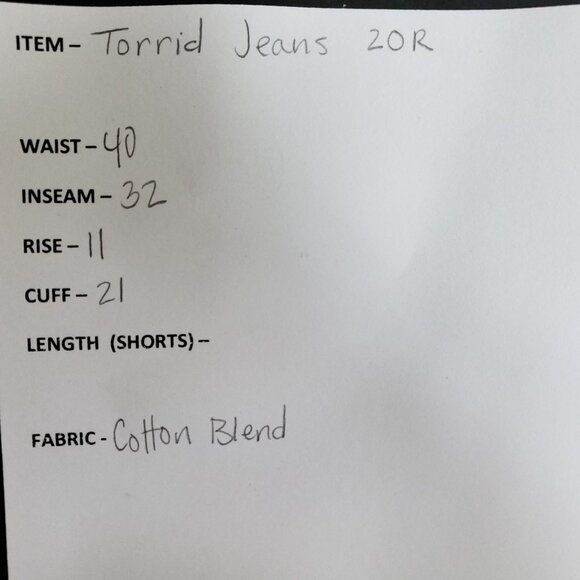 ITEM – Torrid Jeans 20R
WAIST – 40
INSEAM – 32
RISE – 11
CUFF – 21
LENGTH (SHORTS) –
FABRIC - Cotton Blend